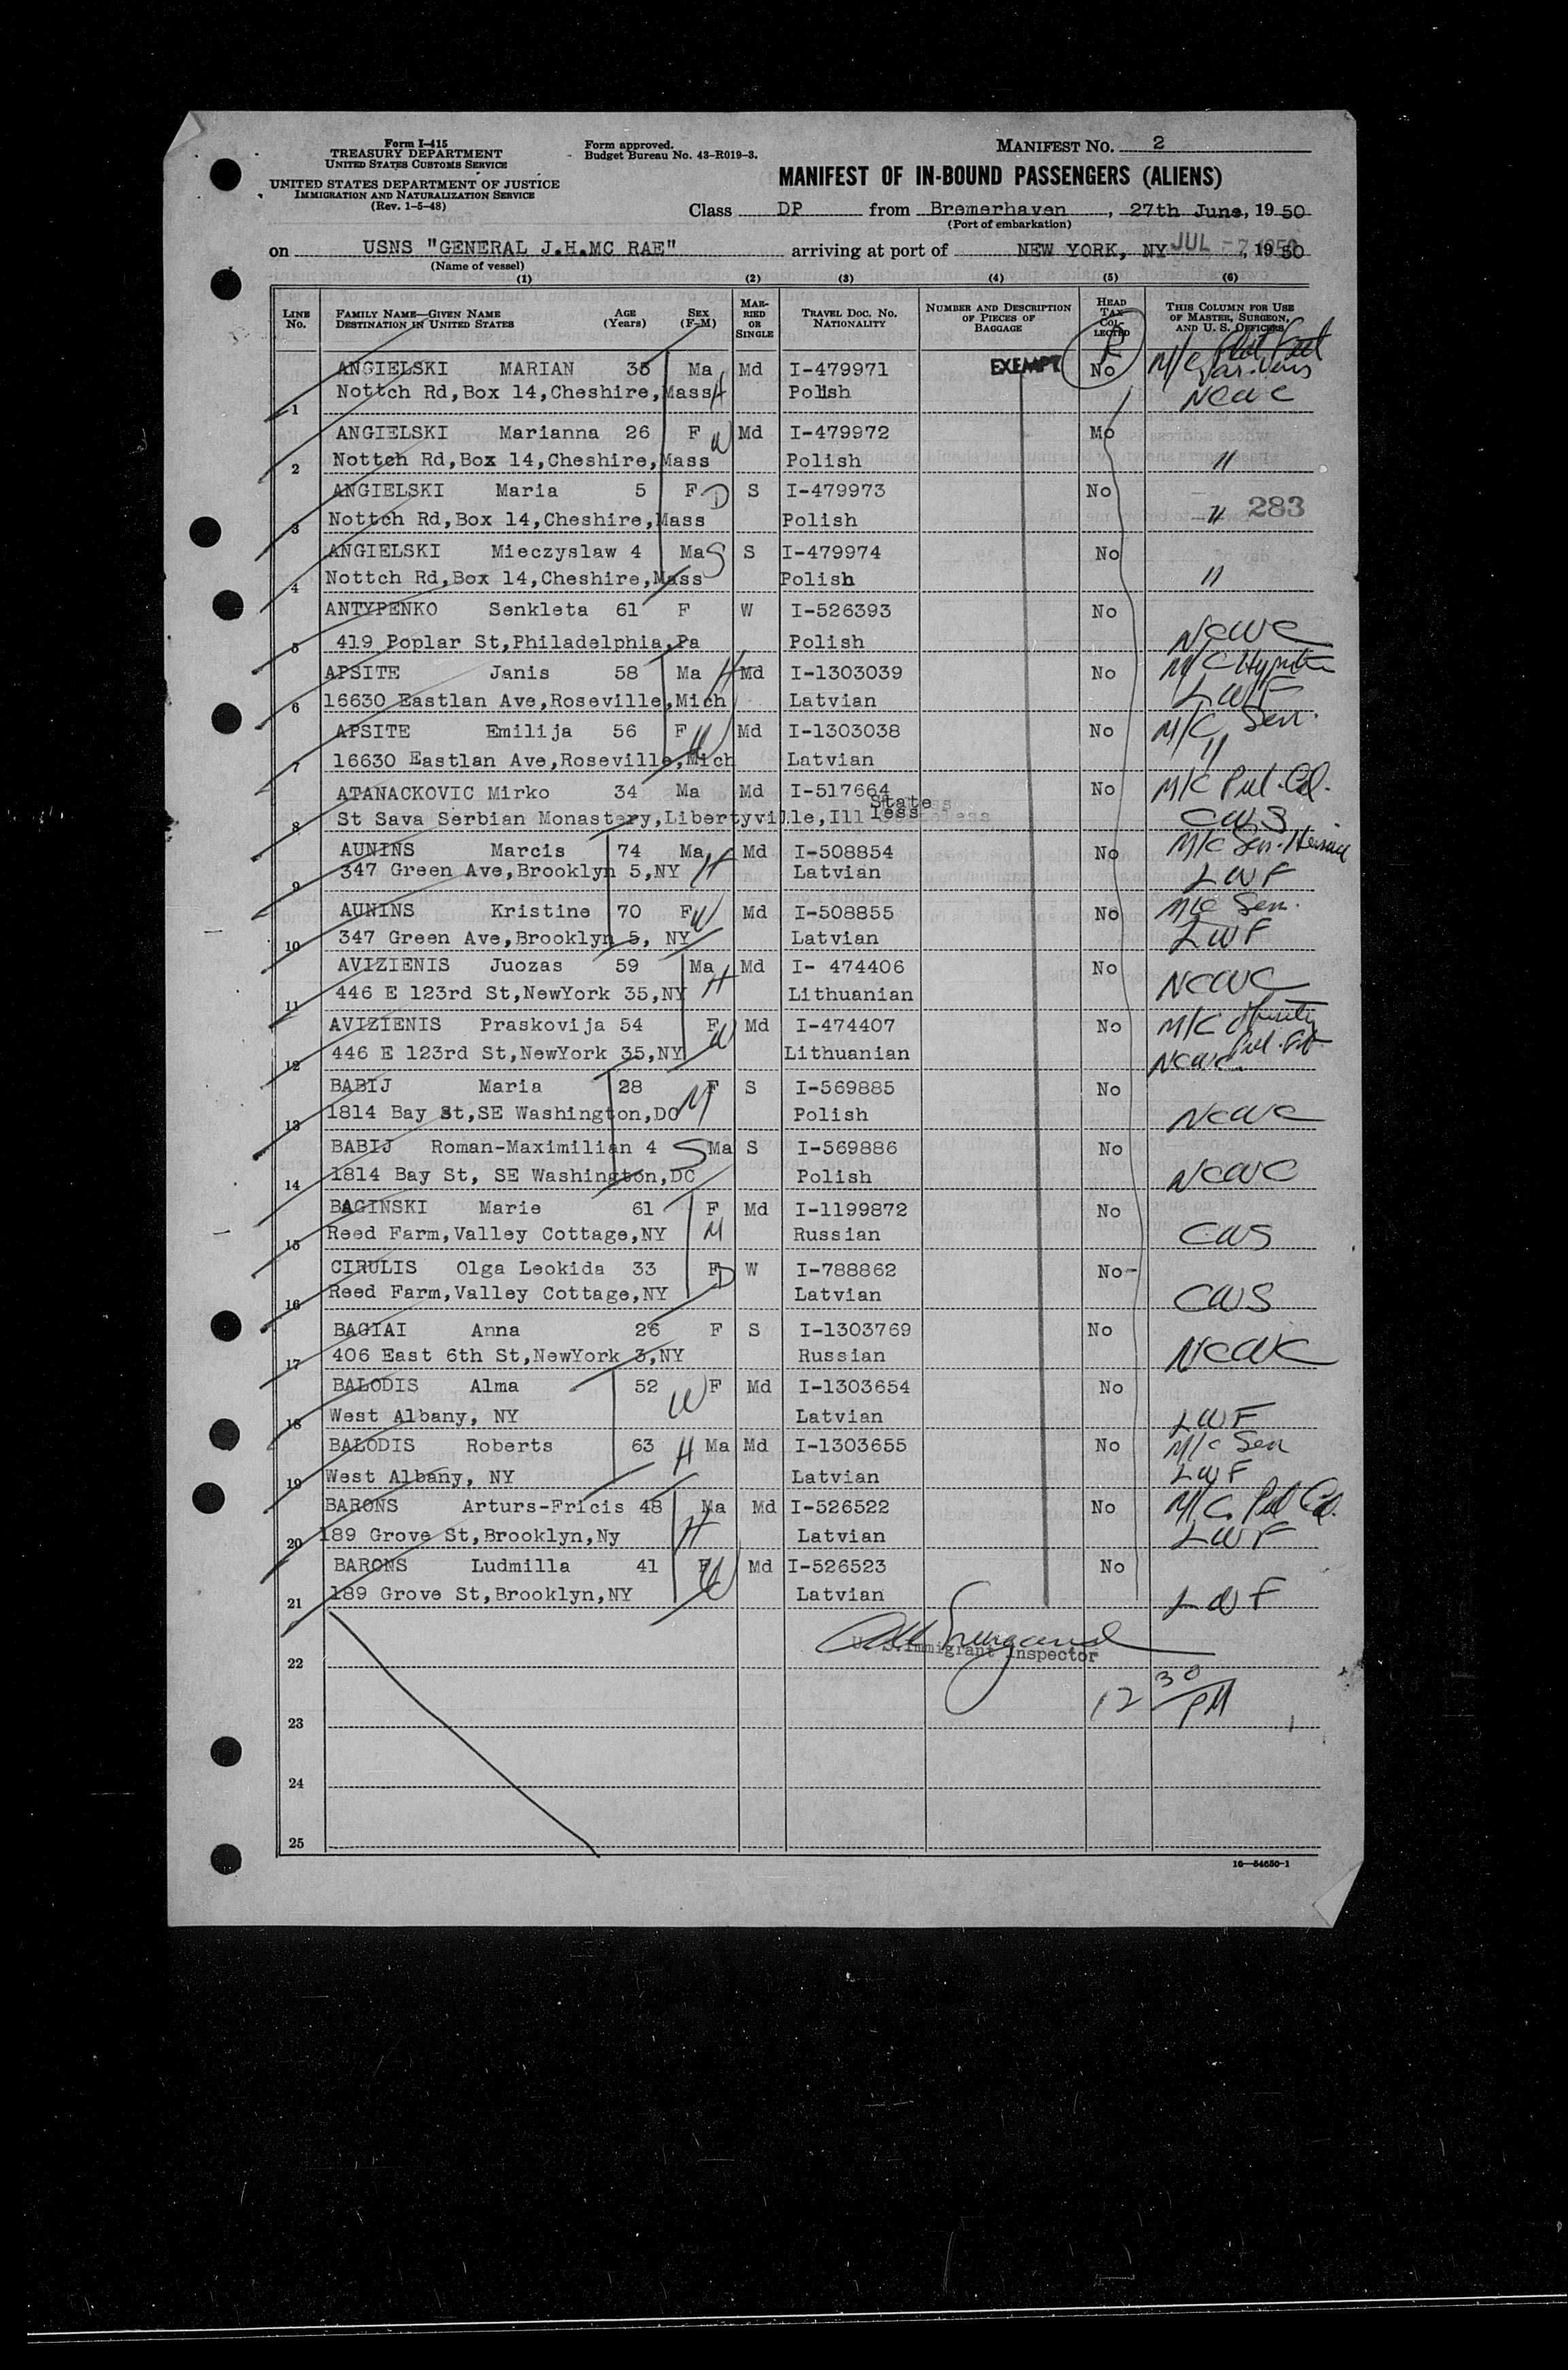 Form I-415
TREASURY DEPARTMENT
UNITED STATES CUSTOMS SERVICE
UNITED STATES DEPARTMENT OF JUSTICE
IMMIGRATION AND NATURALIZATION SERVICE
(Rev. 1-5-48)
Form approved.
Budget Bureau No. 43-R019-3.
MANIFEST NO. 2
MANIFEST OF IN-BOUND PASSENGERS (ALIENS)
Class DP from Bremerhaven, 27th June, 1950
(Port of embarkation)
on USNS "GENERAL J.H.MC RAE" arriving at port of NEW YORK, NY JUL -7 1950, 1950
(Name of vessel)
(1) (2) (3) (4) (5) (6)
LINE NO. FAMILY NAME—GIVEN NAME DESTINATION IN UNITED STATES AGE (Years) SEX (F-M) MARRIED OR SINGLE TRAVEL DOC. NO. NATIONALITY NUMBER AND DESCRIPTION OF PIECES OF BAGGAGE HEAD TAX COLLECTED THIS COLUMN FOR USE OF MASTER, SURGEON, AND U. S. OFFICERS
ANGIELSKI MARIAN 35 Ma Md I-479971 EXEMPT No M/C Flat Feet Var. Veins
1 Nottch Rd,Box 14,Cheshire,Mass H Polish NCWC
ANGIELSKI Marianna 26 F W Md I-479972 Mo
2 Nottch Rd,Box 14,Cheshire,Mass Polish "
ANGIELSKI Maria 5 F D S I-479973 No
3 Nottch Rd,Box 14,Cheshire,Mass Polish " 283
ANGIELSKI Mieczyslaw 4 Ma S S I-479974 No
4 Nottch Rd,Box 14,Cheshire,Mass Polish "
ANTYPENKO Senkleta 61 F W I-526393 No
5 419 Poplar St,Philadelphia,Pa Polish NCWC
APSITE Janis 58 Ma H Md I-1303039 No M/C
6 16630 Eastlan Ave,Roseville,Mich Latvian LWF
APSITE Emilija 56 F W Md I-1303038 No M/C Sen.
7 16630 Eastlan Ave,Roseville,Mich Latvian "
ATANACKOVIC Mirko 34 Ma Md I-517664 No M/C Pul.
8 St Sava Serbian Monastery,Libertyville,Ill State less CWS
AUNINS Marcis 74 Ma H Md I-508854 No M/C Sen. Hernia
9 347 Green Ave,Brooklyn 5,NY Latvian LWF
AUNINS Kristine 70 F W Md I-508855 No M/C Sen.
10 347 Green Ave,Brooklyn 5, NY Latvian LWF
AVIZIENIS Juozas 59 Ma H Md I- 474406 No
11 446 E 123rd St,NewYork 35,NY Lithuanian NCWC
AVIZIENIS Praskovija 54 F W Md I-474407 No M/C
12 446 E 123rd St,NewYork 35,NY Lithuanian NCWC
BABIJ Maria 28 F S I-569885 No
13 1814 Bay St,SE Washington,DC M Polish NCWC
BABIJ Roman-Maximilian 4 S Ma S I-569886 No
14 1814 Bay St, SE Washington,DC Polish NCWC
BAGINSKI Marie 61 F Md I-1199872 No
15 Reed Farm,Valley Cottage,NY M Russian CWS
CIRULIS Olga Leokida 33 F D W I-788862 No-
16 Reed Farm,Valley Cottage,NY Latvian CWS
BAGIAI Anna 26 F S I-1303769 No
17 406 East 6th St,NewYork 3,NY Russian NCWC
BALODIS Alma 52 W F Md I-1303654 No
18 West Albany, NY Latvian LWF
BALODIS Roberts 63 H Ma Md I-1303655 No M/C Sen
19 West Albany, NY Latvian LWF
BARONS Arturs-Fricis 48 Ma Md I-526522 No M/C. Pul
20 189 Grove St,Brooklyn,Ny H Latvian LWF
BARONS Ludmilla 41 F W Md I-526523 No
21 189 Grove St,Brooklyn,NY Latvian LWF
U. S. Immigrant Inspector
22
12 30 PM
23
24
25
16—54650-1